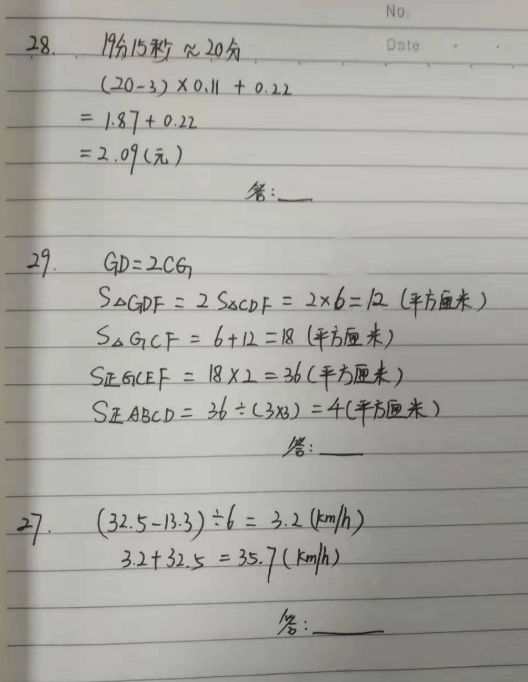 No.
Date
28. 19分15秒 ≈ 20分
(20-3)×0.11 + 0.22
= 1.87 + 0.22
= 2.09(元)
答:__
29. GD=2CG
S△GDF = 2 S△CDF = 2×6=12 (平方厘米)
S△GCF = 6+12=18 (平方厘米)
S正GCEF = 18×2=36(平方厘米)
S正ABCD = 36÷(3×3) = 4(平方厘米)
答:__
27. (32.5-13.3)÷6 = 3.2 (km/h)
3.2+32.5 = 35.7 (km/h)
答:__